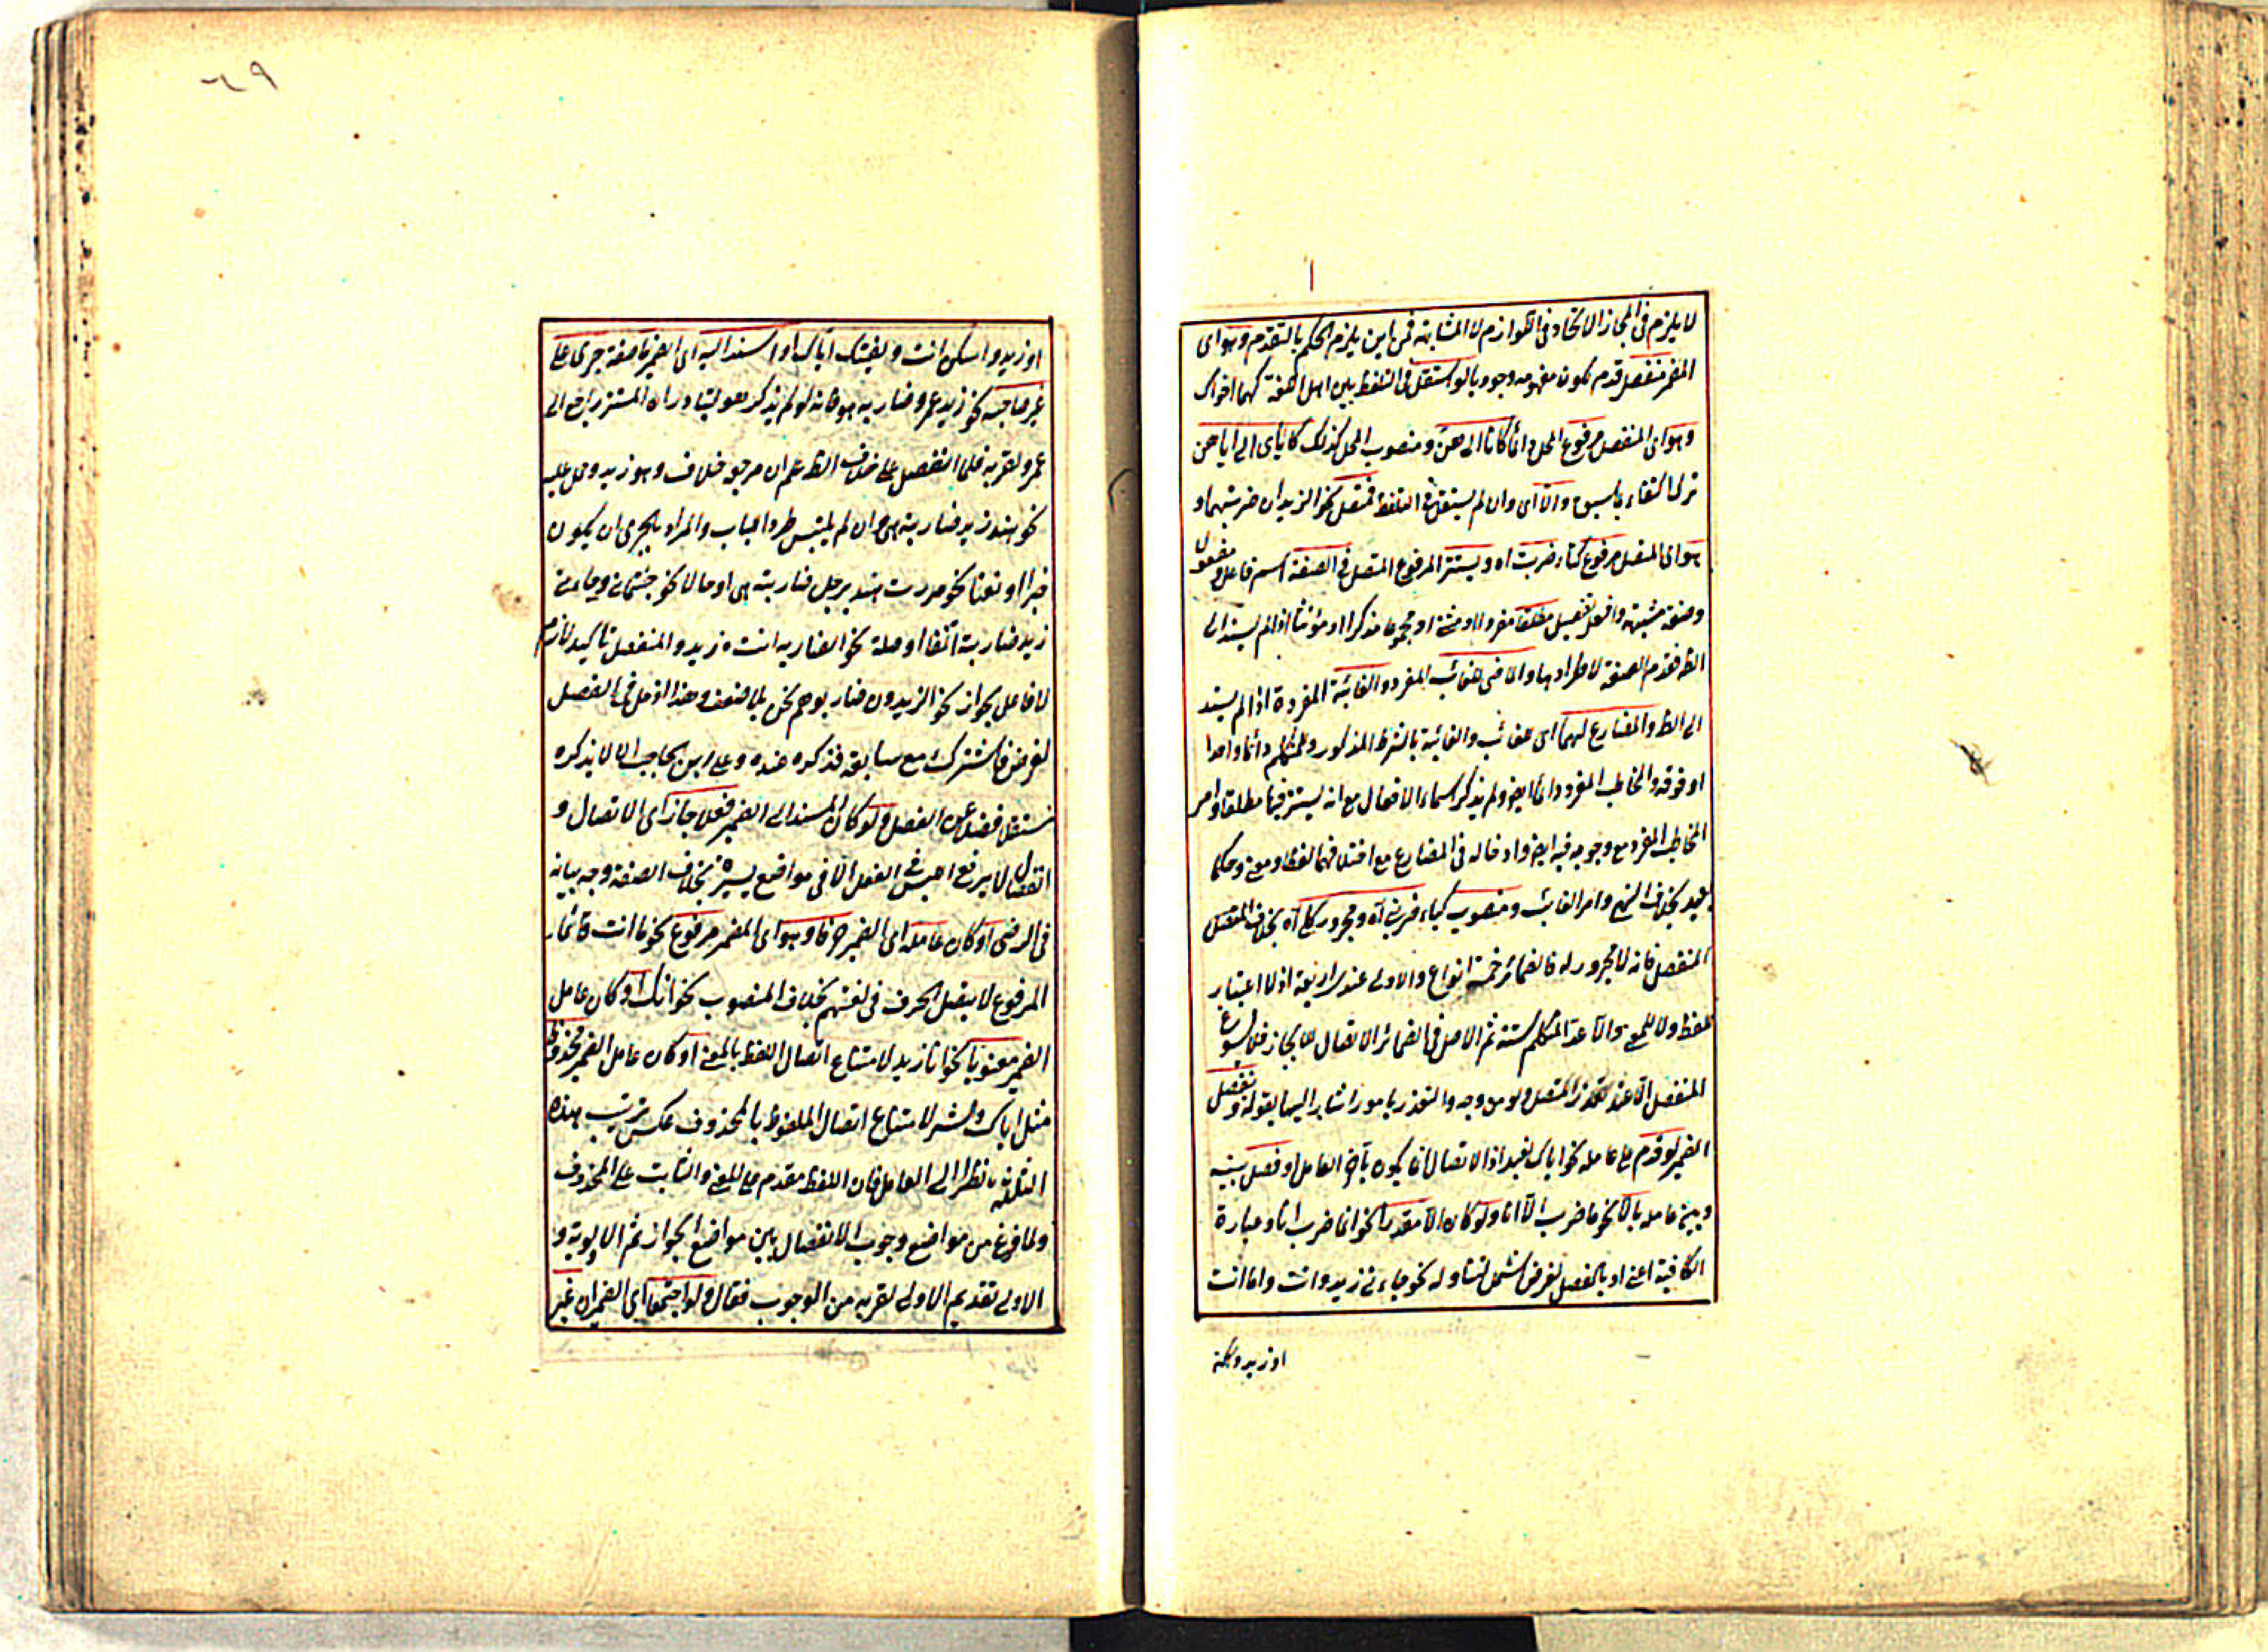 لا يلزم فى المجاز الاتحاد فى اللوازم لا المشابهة فمن اين يلزم الحكم بالتقدم وهو اى
المضمر منفصل قدم لكون مفهومه وجوديا لو استقل فى التلفظ بين اهل اللغة كهما اخواك
وهو اى المنفصل مرفوع المحل دائما كانا الى هن ومنصوب المحل كذلك كاياى الى اياهن
ترك اكتفاء بما سبق والا اى وان لم يستقل فى التلفظ فمتصل نحو الزيدان ضربتهما و
هو اى المتصل مرفوع كتاء ضربت اه ويستتر المرفوع المتصل فى الصفة اسم فاعل ومفعول
وصفة مشبهة وافعل تفضيل مطلقا مفردا او مثنى او مجموعا مذكرا او مؤنثا اذا لم يسند الى
الظ فقدم الصفة لاطرادها والماضى للغائب المفرد والغائبة المفردة اذا لم يسند
الى الظ والمضارع لهما اى للغائب والغائبة بالشرط المذكور وللمتكلم دائما واحدا
او فوقه والمخاطب المفرد دائما ايضا ولم يذكر اسماء الافعال مع انه يستتر فيها مطلقا وامر
المخاطب المفرد مع وجوبه فيه ايضا وادخاله فى المضارع مع اختلافهما لفظا ومعنى وحكما
بعيد بخلاف النهى وامر الغائب ومنصوب كياء ضربنى اه ومجرور كلى اه بخلاف المتصل
المنفصل فانه لا مجرور له فالضمائر خمسة انواع والاولى عند اربعة اذ لا اعتبار
للفظ ولا للمعنى والا عد المتكلم ستة ثم الاصل فى الضمائر الاتصال للايجاز فلا يسوغ
المنفصل الا عند تعذر المتصل ولو من وجه والتعذر بامور اشار اليها بقوله وينفصل
الضمير لو قدم على عامله نحو اياك نعبد اذ الاتصال انما يكون بآخر العامل او فصل بينه
وبين عامله بالا نحو ما ضرب الا انا ولو كان الا مقدرا نحو انما ضرب انا وعبارة
الكافية اعنى او بالفصل لغرض اشمل لتناوله نحو جاءنى زيد وانت واما انت
او زيد واسكن
٦٩
او زيد واسكن انت ولقيتك اياك او اسند اليه اى الضمير صفة جرى على
غير صاحبه نحو زيد عمرو ضاربه هو فانه لو لم يذكر هو لتبادر ان المستتر راجع الى
عمرو لقربه فلما انفصل على خلاف الظ علم ان مرجعه خلافه وهو زيد وحمل عليه
نحو هند زيد ضاربته هى وان لم يلتبس طردا للباب والمراد بالجرى ان يكون
خبرا او نعتا نحو مررت هند برجل ضاربته هى او حالا نحو جئتمانى وجاءنى
زيد ضاربته انتما او صلة نحو الضاربه انت زيد والمنفصل تأكيد لازم
لا فاعل بجواز نحو الزيدون ضاربوهم نحن بلا ضعف وهذا ادخل فى الفصل
لغرض فاشترك مع سابقه فذكره عنده وعلى ابن الحاجب الا لا يذكره
مستقلا فضلا عن الفصل ولو كان المسند الى الضمير فعلا جاز اى الاتصال و
انفصال لا يرتفع اصلا فى الفعل الا فى مواضع يسيرة بخلاف الصفة وجه بيانه
فى الرضى او كان عامله اى الضمير حرفا وهو اى المضمر مرفوع نحو ما انت قائما
المرفوع لا يتصل بالحرف فى لغتهم بخلاف المنصوب نحو انك او كان عامل
الضمير معنويا نحو انا زيد لامتناع اتصال اللفظ بالمعنى او كان عامل الضمير محذوفا
مثل اياك والشر لامتناع اتصال الملفوظ بالمحذوف عكس ترتيب هذه
الثلثة بانظر الى العامل فان اللفظ مقدم على المعنى والثابت على المحذوف
ولما فرغ من مواضع وجوب الانفصال بين مواضع الجواز ثم الاولوية و
الاولى تقديم الاولى لقربه من الوجوب فقال ولو اجتمعا اى الضميران غير